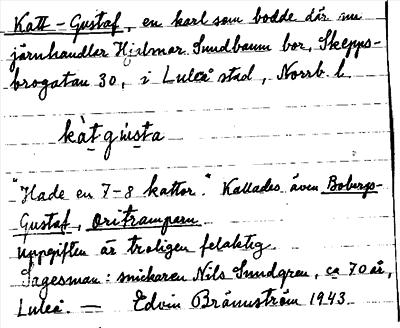 Katt-Gustaf, en karl som bodde där nu
järnhandlar Hjalmar Sundbaum bor, Skepps-
brogatan 30, i Luleå stad, Norrb. l.
kàtgùsta
"Hade en 7-8 kattor." Kallades även Bobergs-
Gustaf, Oritramparn
Uppgiften är troligen felaktig.
Sagesman: snickaren Nils Sundgren, ca 70 år,
Luleå. — Edvin Brännström 1943.